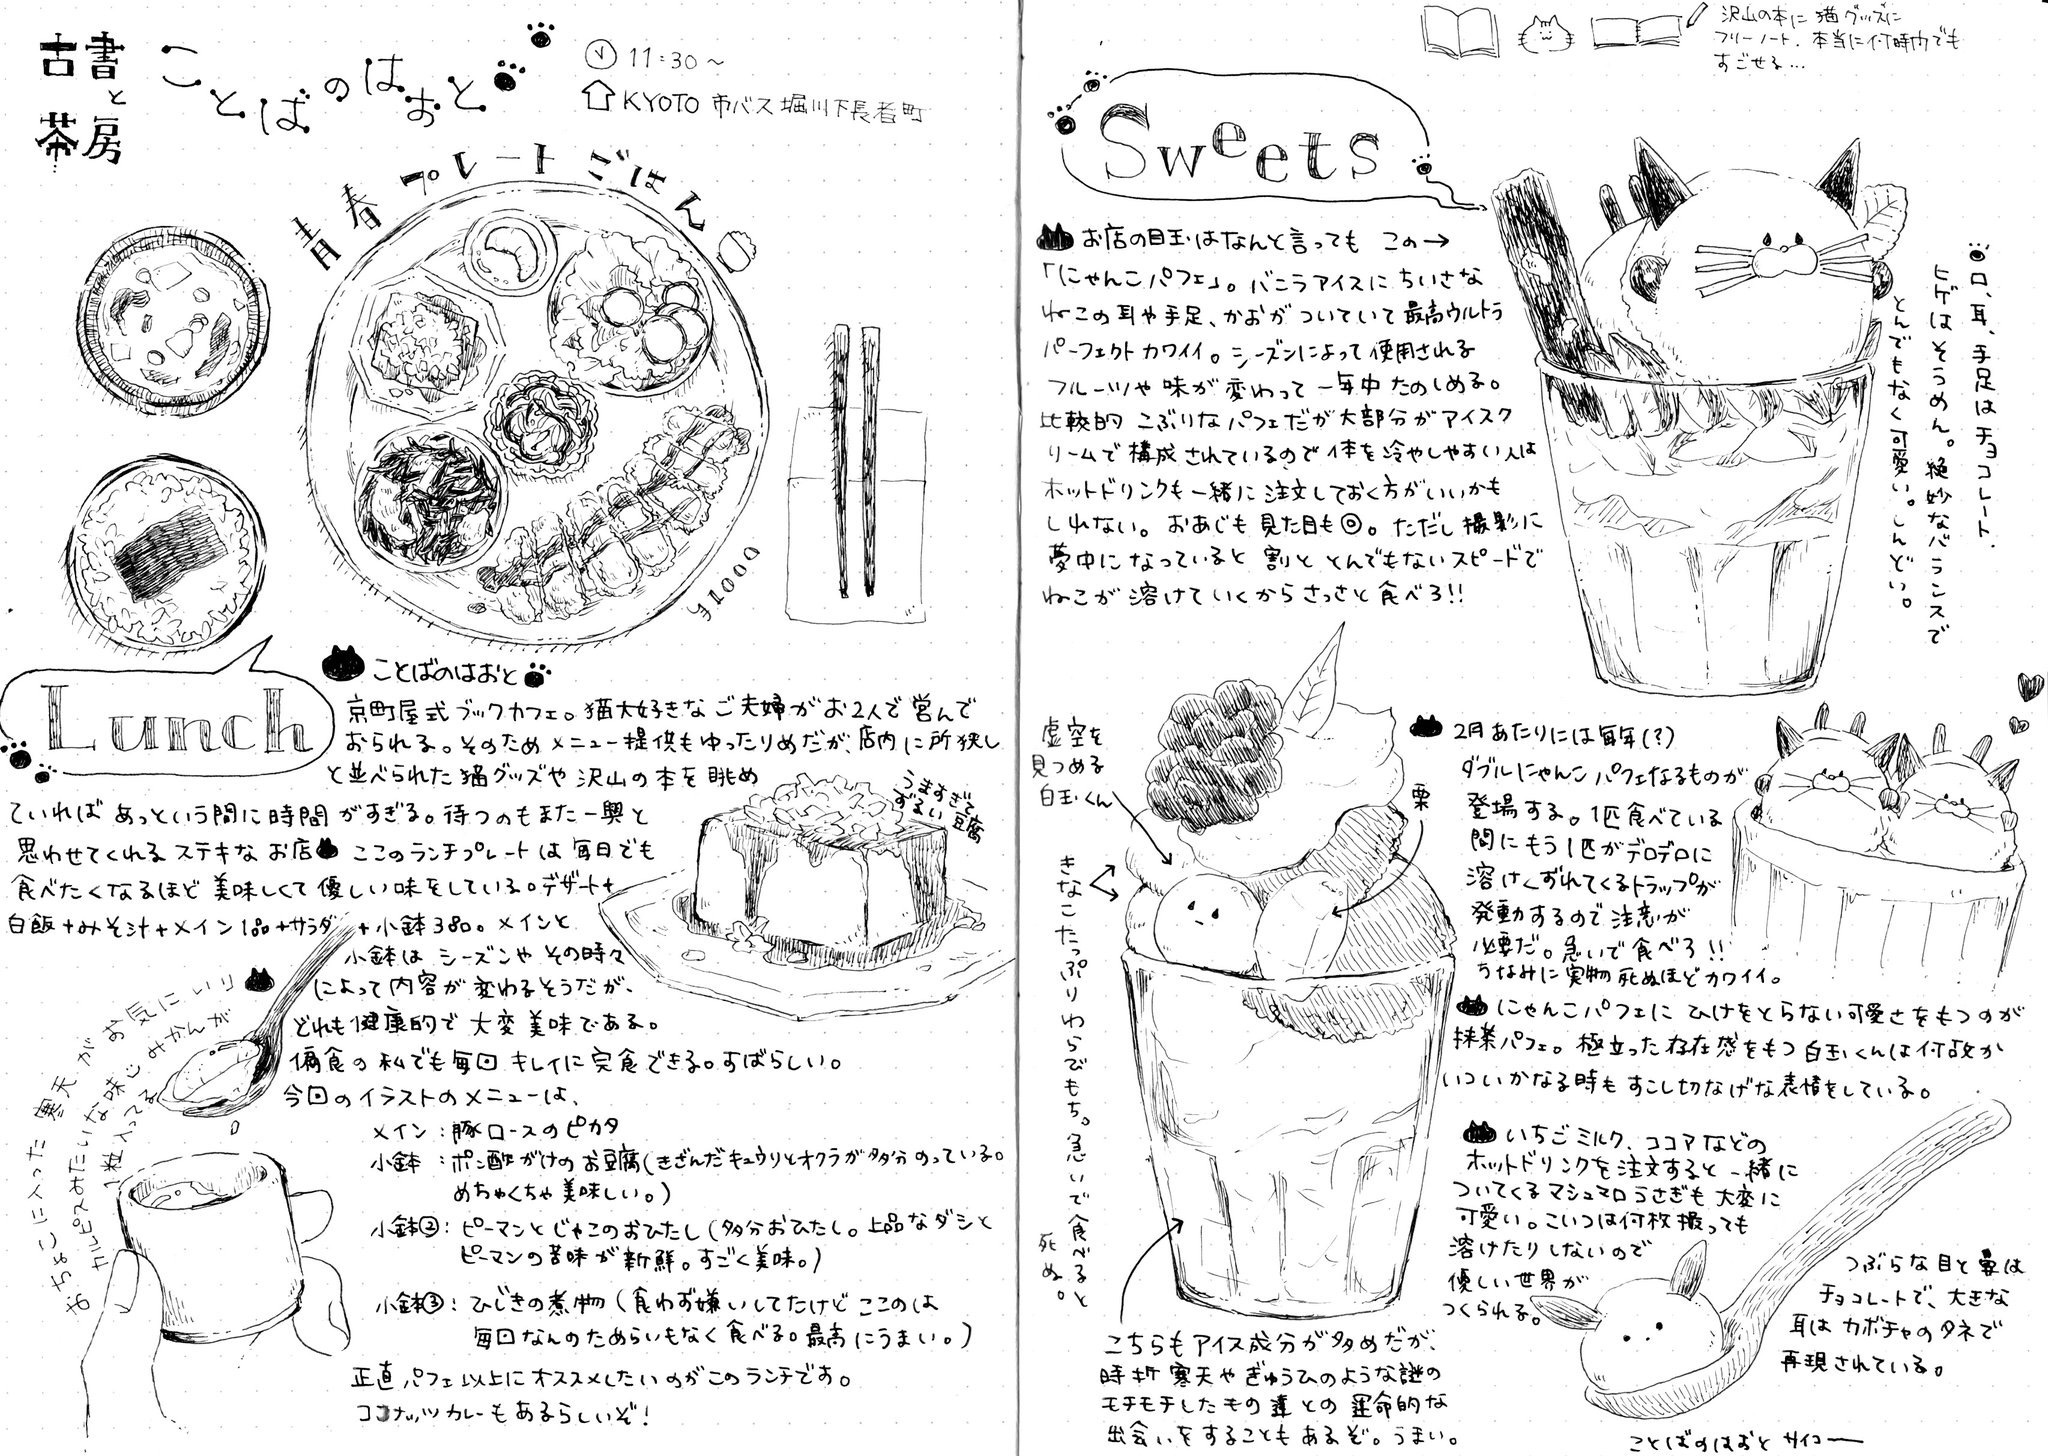 古書と茶房
ことばのはおと
11:30〜
KYOTO 市バス堀川下長者町
青春プレートごはん
¥1000
Lunch
ことばのはおと
京町屋式ブックカフェ。猫大好きなご夫婦がお2人で営んで
おられる。そのためメニュー提供もゆったりめだが、店内に所狭し
と並べられた猫グッズや沢山の本を眺め
ていればあっという間に時間がすぎる。待つのもまた一興と
思わせてくれるステキなお店 ここのランチプレートは毎日でも
食べたくなるほど美味しくて優しい味をしている。デザート+
白飯+みそ汁+メイン1品+サラダ+小鉢3品。メインと
小鉢はシーズンやその時々
によって内容が変わるそうだが、
どれも健康的で大変美味である。
偏食の私でも毎回キレイに完食できる。すばらしい。
今回のイラストのメニューは、
メイン:豚ロースのピカタ
小鉢:ポン酢がけのお豆腐(きざんだキュウリとオクラが多分のっている。
めちゃくちゃ美味しい。)
小鉢②:ピーマンとじゃこのおひたし(多分おひたし。上品なダシと
ピーマンの苦味が新鮮。すごく美味。)
小鉢③:ひじきの煮物(食わず嫌いしてたけどここのは
毎回なんのためらいもなく食べる。最高にうまい。)
正直パフェ以上にオススメしたいのがこのランチです。
ココナッツカレーもあるらしいぞ!
うますぎて
ずるい豆腐
おちょこに入った寒天がお気にいり
カルピスみたいな味にみかんが
1粒入ってる
沢山の本に猫グッズに
フリーノート、本当に何時間でも
すごせる…
Sweets
お店の目玉はなんと言っても この→
「にゃんこパフェ」。バニラアイスにちいさな
ねこの耳や手足、かおがついていて最高ウルトラ
パーフェクトカワイイ。シーズンによって使用される
フルーツや味が変わって一年中たのしめる。
比較的こぶりなパフェだが大部分がアイスク
リームで構成されているので体を冷やしやすい人は
ホットドリンクも一緒に注文しておく方がいいかも
しれない。おあじも見た目も◎。ただし撮影に
夢中になっていると割ととんでもないスピードで
ねこが溶けていくからさっさと食べろ!!
口、耳、手足はチョコレート、
ヒゲはそうめん。絶妙なバランスで
とんでもなく可愛い。しんどい。
虚空を
見つめる
白玉くん
栗
きなこたっぷりわらびもち。急いで食べると
死ぬ。
こちらもアイス成分が多めだが、
時折寒天やぎゅうひのような謎の
モチモチしたもの達との運命的な
出会いをすることもあるぞ。うまい。
2月あたりには毎年(?)
ダブルにゃんこパフェなるものが
登場する。1匹食べている
間にもう1匹がデロデロに
溶けくずれてくるトラップが
発動するので注意が
必要だ。急いで食べろ!!
ちなみに実物死ぬほどカワイイ。
にゃんこパフェにひけをとらない可愛さをもつのが
抹茶パフェ。極立った存在感をもつ白玉くんは何故か
いついかなる時もすこし切なげな表情をしている。
いちごミルク、ココアなどの
ホットドリンクを注文すると一緒に
ついてくるマシュマロうさぎも大変に
可愛い。こいつは何枚撮っても
溶けたりしないので
優しい世界が
つくられる。
つぶらな目と鼻は
チョコレートで、大きな
耳はカボチャのタネで
再現されている。
ことばのはおとサイコー